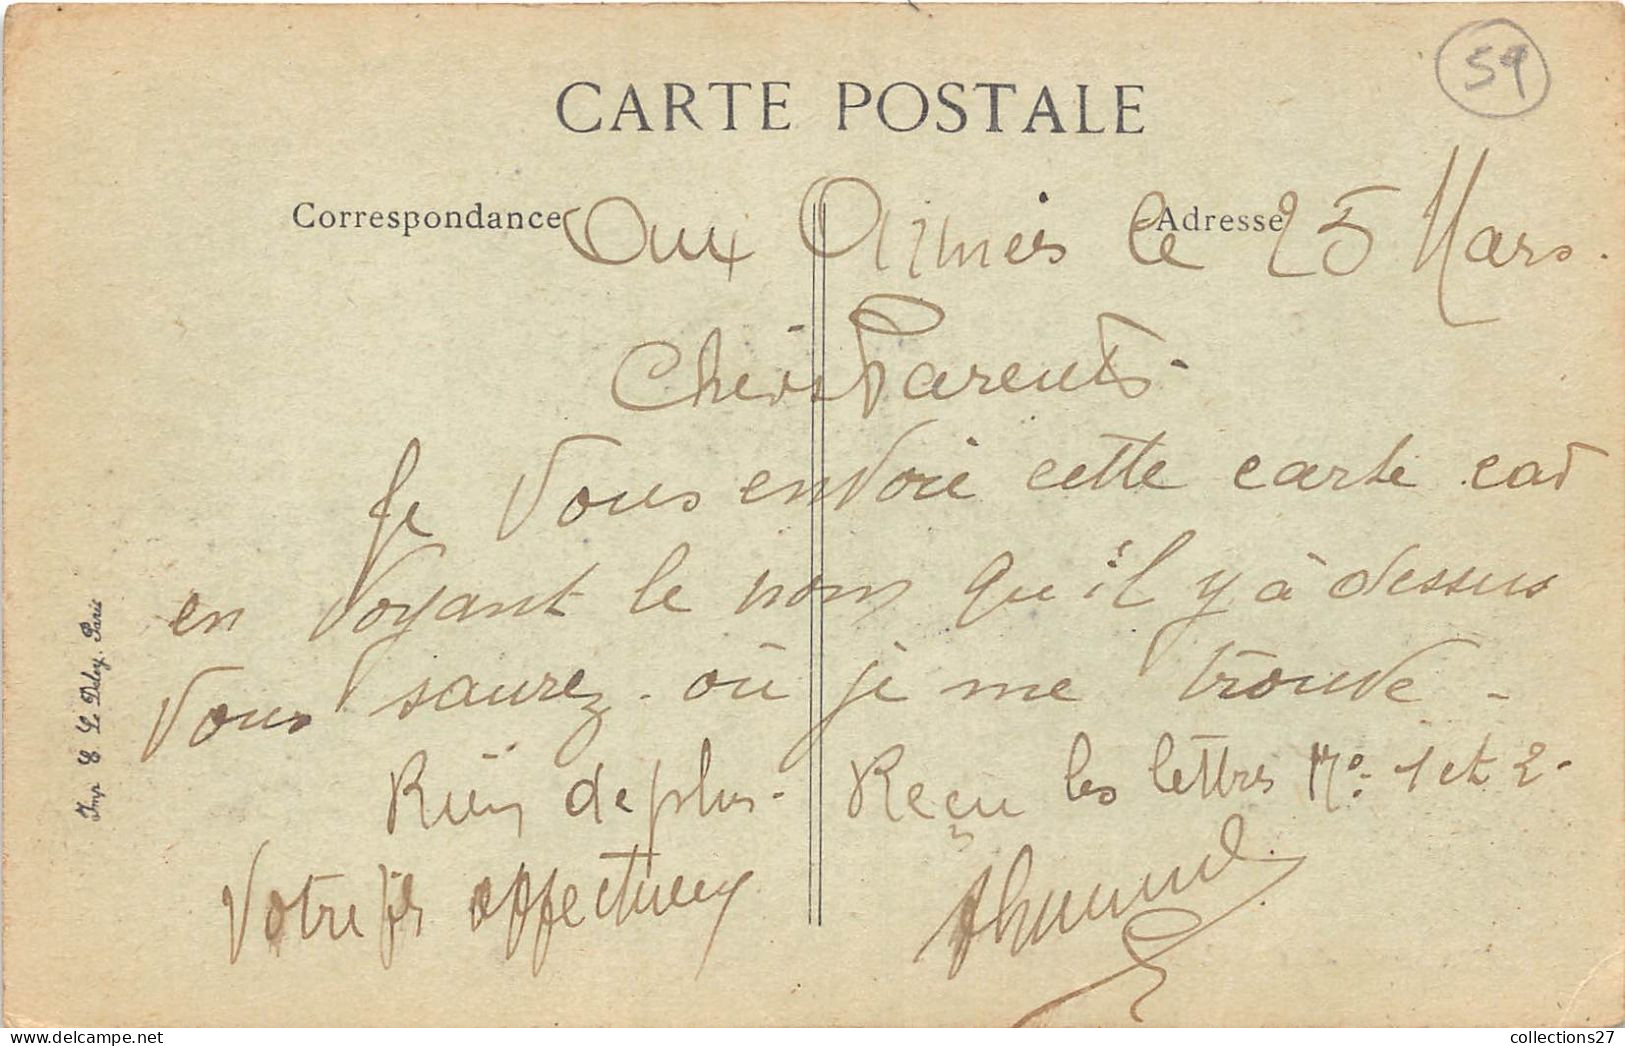 59
CARTE POSTALE
Correspondance
Adresse
Aux Armées le 25 Mars.
Chers Parents -
Je vous envoie cette carte car
en voyant le nom qu'il y à dessus
vous saurez où je me trouve -
Rien de plus - Reçu les lettres No. 1 et 2 -
Votre fils affectueux
Imp. E. Le Deley, Paris
collections27